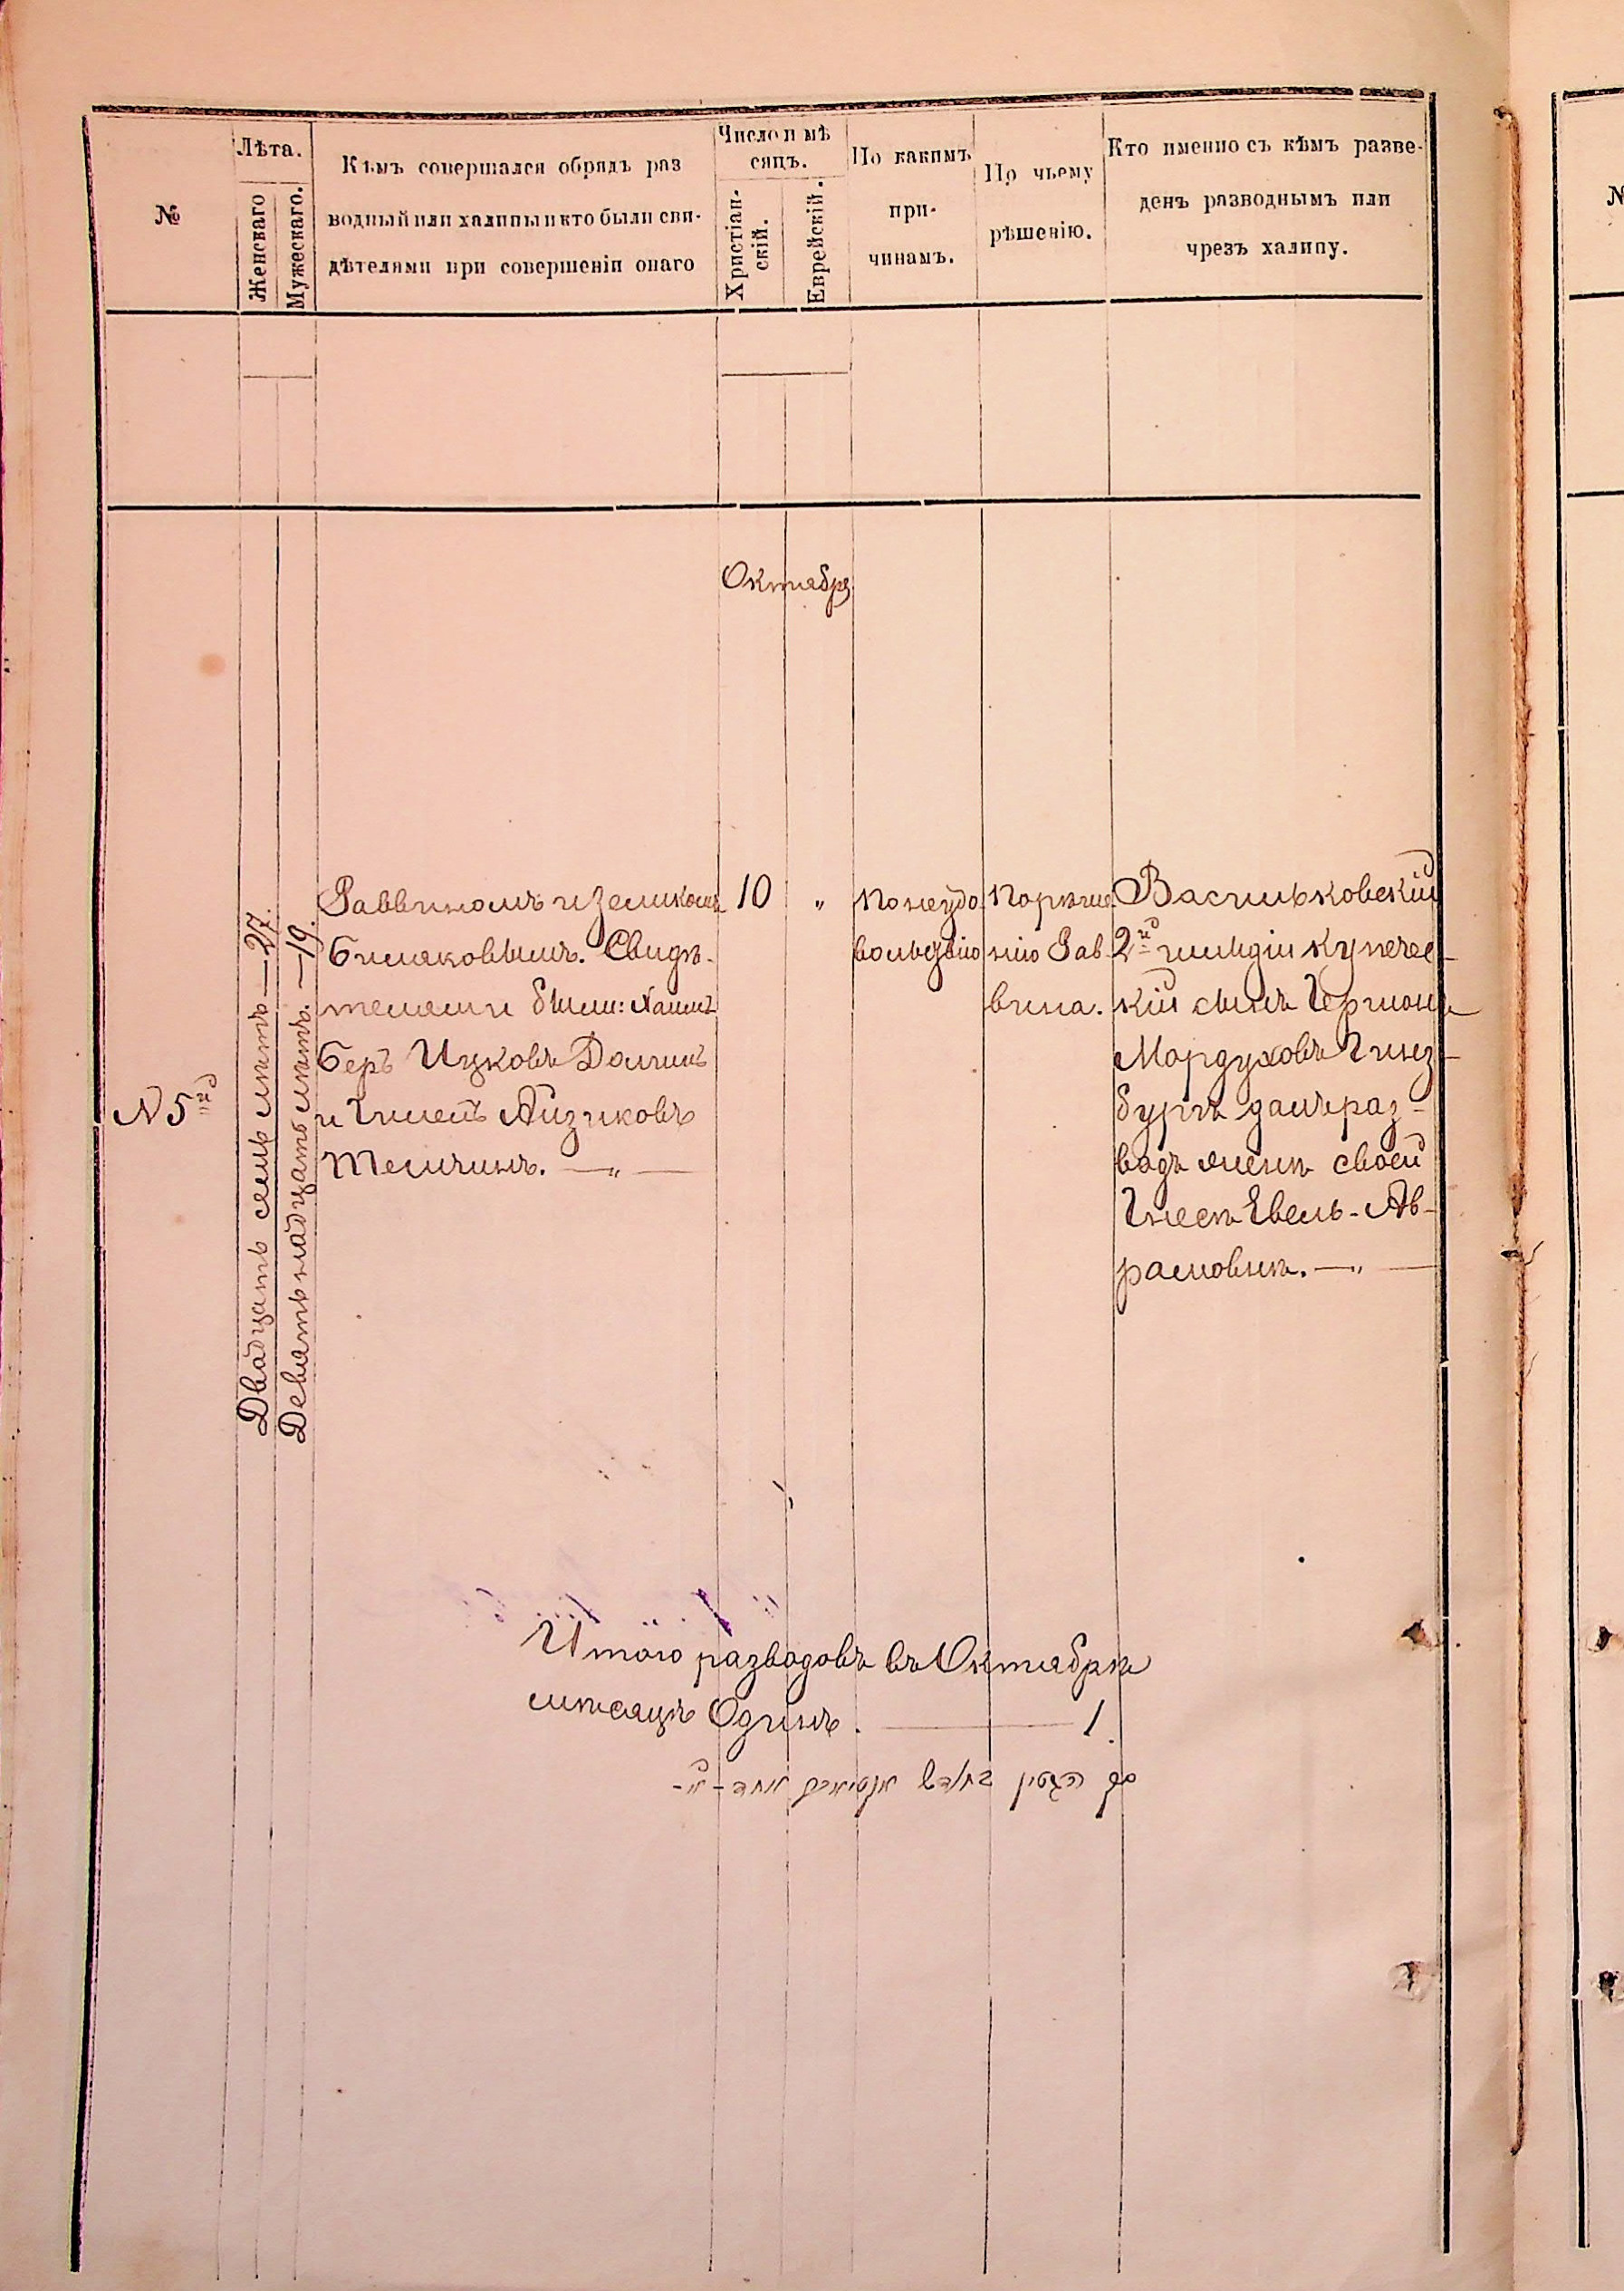 №
Лѣта.
Женскаго
Мужескаго.
Кѣмъ совершался обрядъ раз
водный или халицы и кто были сви-
дѣтелями при совершеніи онаго
Число и мѣ
сяцъ.
Христіан-
скій.
Еврейскій.
По какимъ
при-
чинамъ.
По чьему
рѣшенію.
Кто именно съ кѣмъ разве-
денъ разводнымъ или
чрезъ халицу.
Октября
N 5й
Двадцать семь лѣтъ — 27.
Девятьнадцать лѣтъ. — 19.
Раввиномъ Изеликомъ
Свидѣ-
телями были: Хаимъ
Беръ Ицковъ Долинъ
и Айзиковъ
10
"
По неудо
вольствію
По рѣше
нію Рав-
вина.
Васильковскій
2й гильдіи купечес-
кій сынъ Гершонъ
Мордуховъ Гинз-
бургъ далъ раз-
водъ женѣ своей
Гнесѣ Евель-Ав-
рамовнѣ. — " —
Итого разводовъ въ Октябрѣ
мѣсяцѣ Одинъ. — 1.
סך הגטין בחודש אקטיאבר אחד - א' -